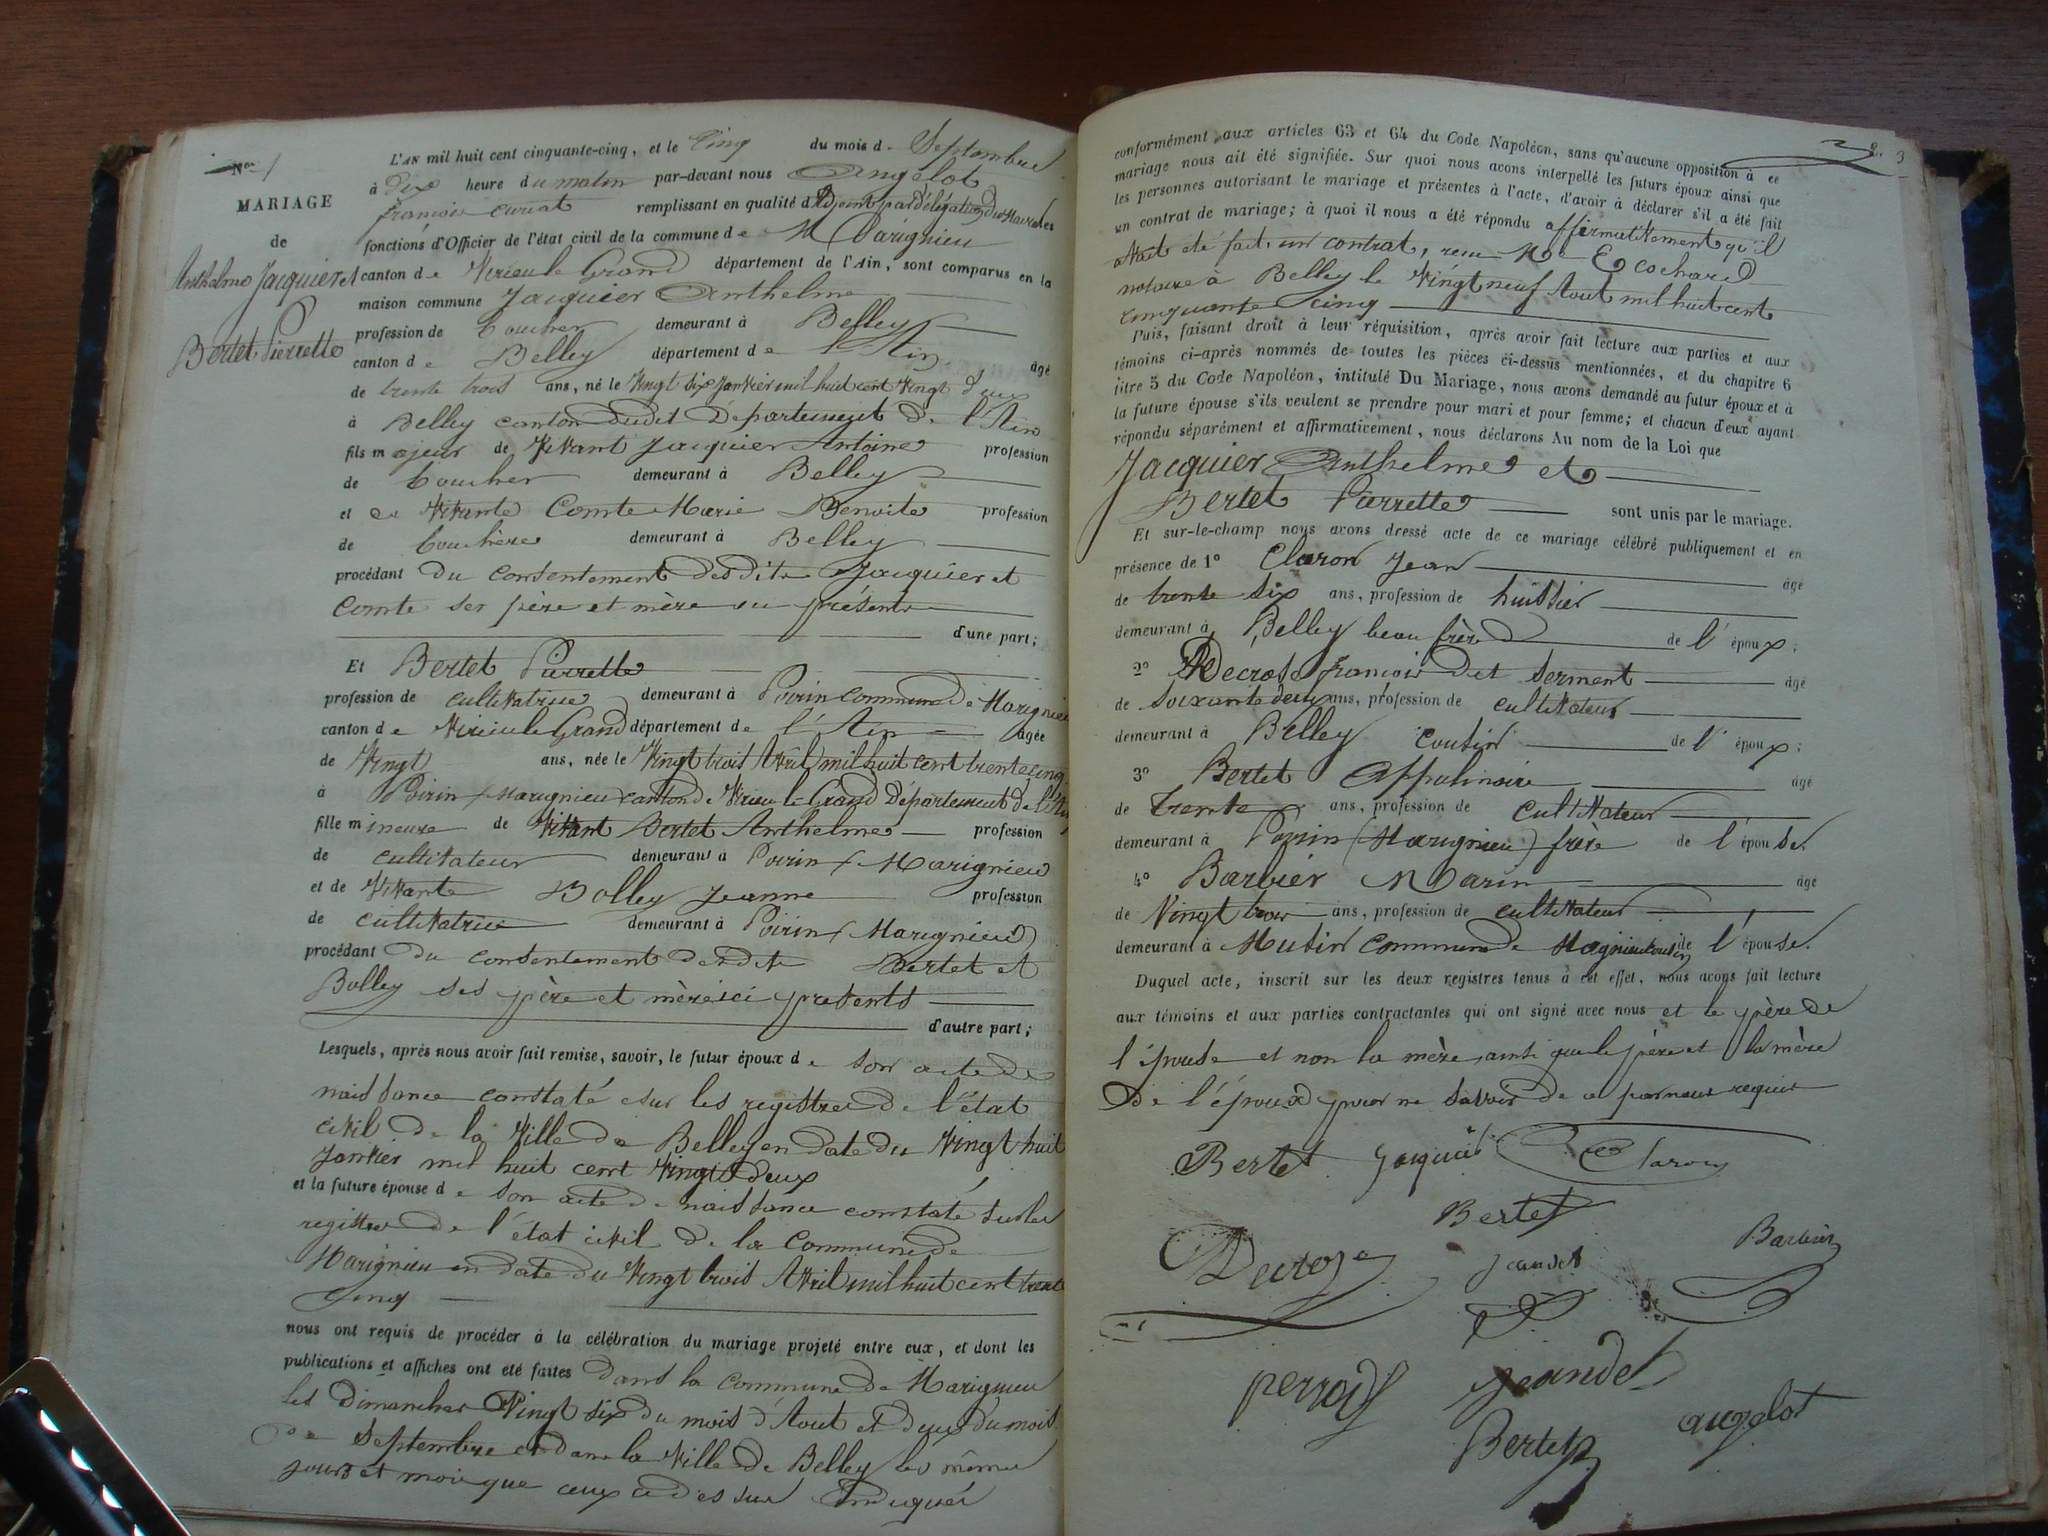 Nº 1
MARIAGE
de
Anthelme Jacquier et
Bertet Pierrette
L'AN mil huit cent cinquante-cinq, et le Cinq du mois d. Septembre
à Dix heure du matin par-devant nous Angelot
françois curiat remplissant en qualité d'Adjoint par délégation du Maire les
fonctions d'Officier de l'état civil de la commune de Marignieu
canton de Virieu le Grand département de l'Ain, sont comparus en la
maison commune Jacquier Anthelme
profession de boucher demeurant à Belley
canton de Belley département de l'Ain âgé
de trente trois ans, né le Vingt six Janvier mil huit cent vingt deux
à Belley canton dudit Département de l'Ain
fils majeur de Vivant Jacquier Antoine profession
de boucher demeurant à Belley
et de Vivante Comte Marie Benoite profession
de bouchère demeurant à Belley
procédant du consentement desdits Jacquier et
Comte ses père et mère ici présents
d'une part;
Et Bertet Pierrette
profession de cultivatrice demeurant à Poirin commune de Marignieu
canton de Virieu le Grand département de l'Ain âgée
de Vingt ans, née le Vingt trois Avril mil huit cent trente cinq
à Poirin (Marignieu) canton de Virieu le Grand Département de l'Ain
fille mineure de Vivant Bertet Anthelme profession
de cultivateur demeurant à Poirin (Marignieu
et de Vivante Bolley Jeanne profession
de cultivatrice demeurant à Poirin (Marignieu)
procédant du consentement desdits Bertet et
Bolley ses père et mère ici présents
d'autre part;
Lesquels, après nous avoir fait remise, savoir, le futur époux de son acte de
naissance constaté sur les registres de l'état
civil de la Ville de Belley en date du Vingt huit
Janvier mil huit cent vingt deux
et la future épouse de son acte de naissance constaté sur les
registres de l'état civil de la Commune de
Marignieu en date du Vingt trois Avril mil huit cent trente
Cinq
nous ont requis de procéder à la célébration du mariage projeté entre eux, et dont les
publications et affiches ont été faites dans la commune de Marignieu
les Dimanches Vingt six du mois d'Aout et deux du mois
de Septembre et dans la Ville de Belley les même
jours et mois que ceux cidessus Indiqués
conformément aux articles 63 et 64 du Code Napoléon, sans qu'aucune opposition à ce
mariage nous ait été signifiée. Sur quoi nous avons interpellé les futurs époux ainsi que
les personnes autorisant le mariage et présentes à l'acte, d'avoir à déclarer s'il a été fait
un contrat de mariage; à quoi il nous a été répondu affirmativement qu'il
avait été fait un contrat, reçu Me Ecochard
notaire à Belley le Vingt neuf Aout mil huit cent
cinquante cinq
Puis, faisant droit à leur réquisition, après avoir fait lecture aux parties et aux
témoins ci-après nommés de toutes les pièces ci-dessus mentionnées, et du chapitre 6
titre 5 du Code Napoléon, intitulé Du Mariage, nous avons demandé au futur époux et à
la future épouse s'ils veulent se prendre pour mari et pour femme; et chacun d'eux ayant
répondu séparément et affirmativement, nous déclarons Au nom de la Loi que
Jacquier Anthelme et
Bertet Pierrette sont unis par le mariage.
Et sur-le-champ nous avons dressé acte de ce mariage célébré publiquement et en
présence de 1º Claron Jean âgé
de trente six ans, profession de huissier
demeurant à Belley beau frère de l'époux;
2º Decroso françois dit serment âgé
de soixante deux ans, profession de cultivateur
demeurant à Belley cousin de l'époux;
3º Bertet Appolinaire âgé
de trente ans, profession de cultivateur
demeurant à Poirin (Marignieu) frère de l'épouse.
4º Barbier Marin âgé
de Vingt trois ans, profession de cultivateur
demeurant à Musin commune de Magnieu cousin de l'épouse.
Duquel acte, inscrit sur les deux registres tenus à cet effet, nous avons fait lecture
aux témoins et aux parties contractantes qui ont signé avec nous et le père de
l'épouse et non la mère, ainsi que le père et la mère
De l'époux pour ne savoir de ce par nous requis
Bertet Jacquier Claron
Bertet
Decroso Jeandet Barbier
perroud Jeandet
Bertet angelot